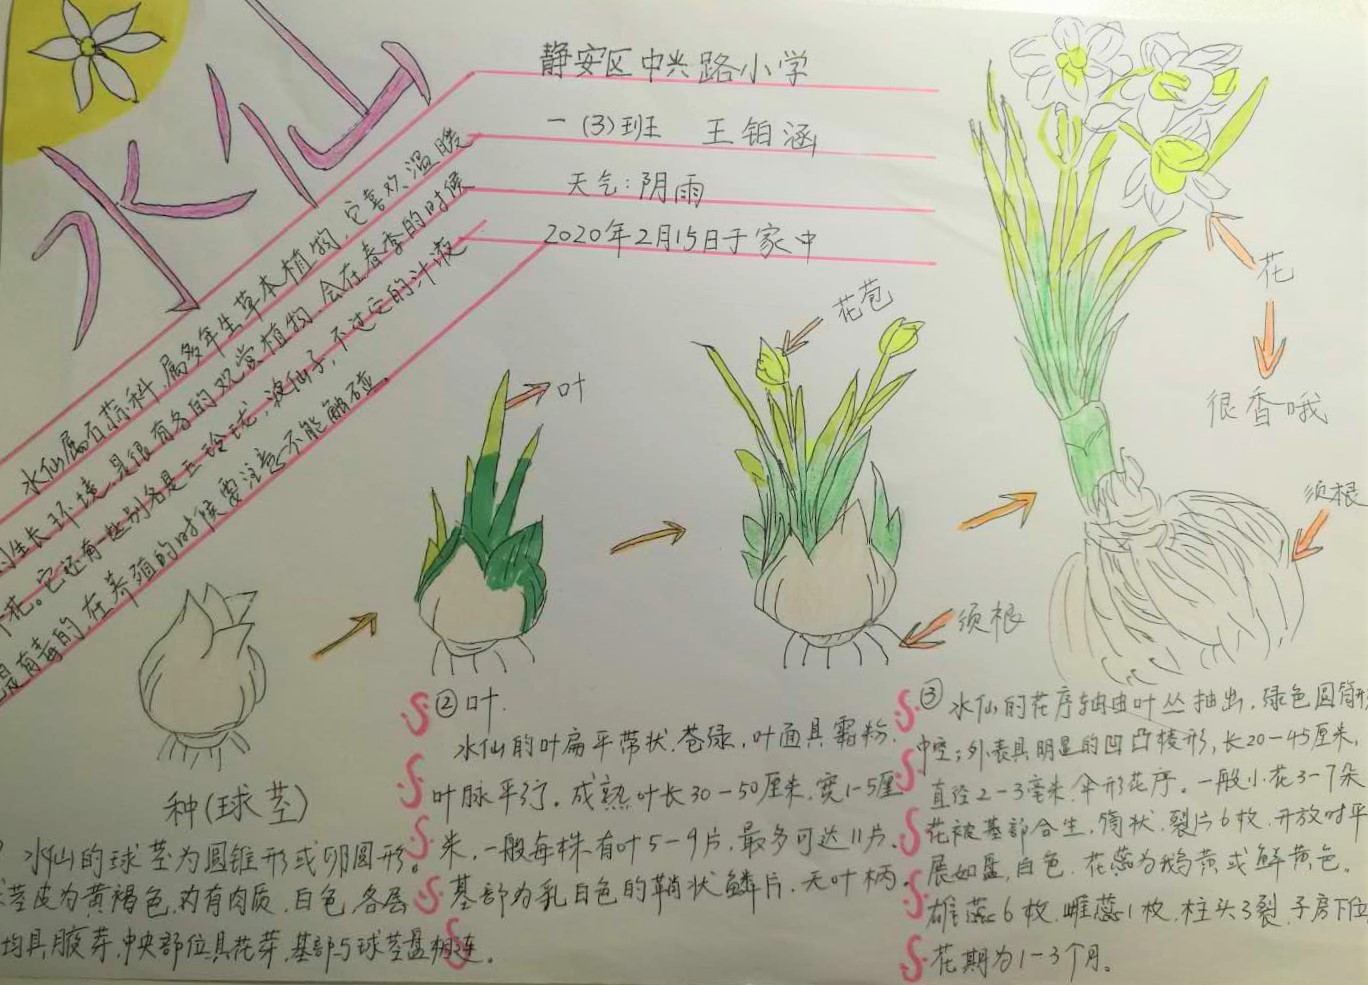 水仙
静安区中兴路小学
一(3)班 王铂涵
天气:阴雨
2020年2月15日于家中
水仙属石蒜科.属多年生草本植物.它喜欢温暖
的生长环境.是很有名的观赏植物.会在春季的时候
开花。它还有些别名是玉玲珑.凌仙子.不过它的汁液
是有毒的,在养殖的时候要注意不能触碰.
叶
花苞
花
很香哦
须根
须根
种(球茎)
水仙的球茎为圆锥形或卵圆形。
球茎皮为黄褐色.内有肉质.白色.各层
均具腋芽,中央部位具花芽,基部与球茎盘相连。
②叶.
水仙的叶扁平带状.苍绿.叶面具霜粉.
叶脉平行.成熟叶长30-50厘米.宽1-5厘
米.一般每株有叶5-9片.最多可达11片.
基部为乳白色的鞘状鳞片.无叶柄.
③水仙的花序轴由叶丛抽出.绿色圆筒形
中空;外表具明显的凹凸棱形,长20-45厘米,
直径2-3毫米.伞形花序。一般小花3-7朵
花被基部合生.筒状.裂片6枚.开放时平
展如盘.白色.花蕊为鹅黄或鲜黄色.
雄蕊6枚.雌蕊1枚.柱头3裂.子房下位
花期为1-3个月。